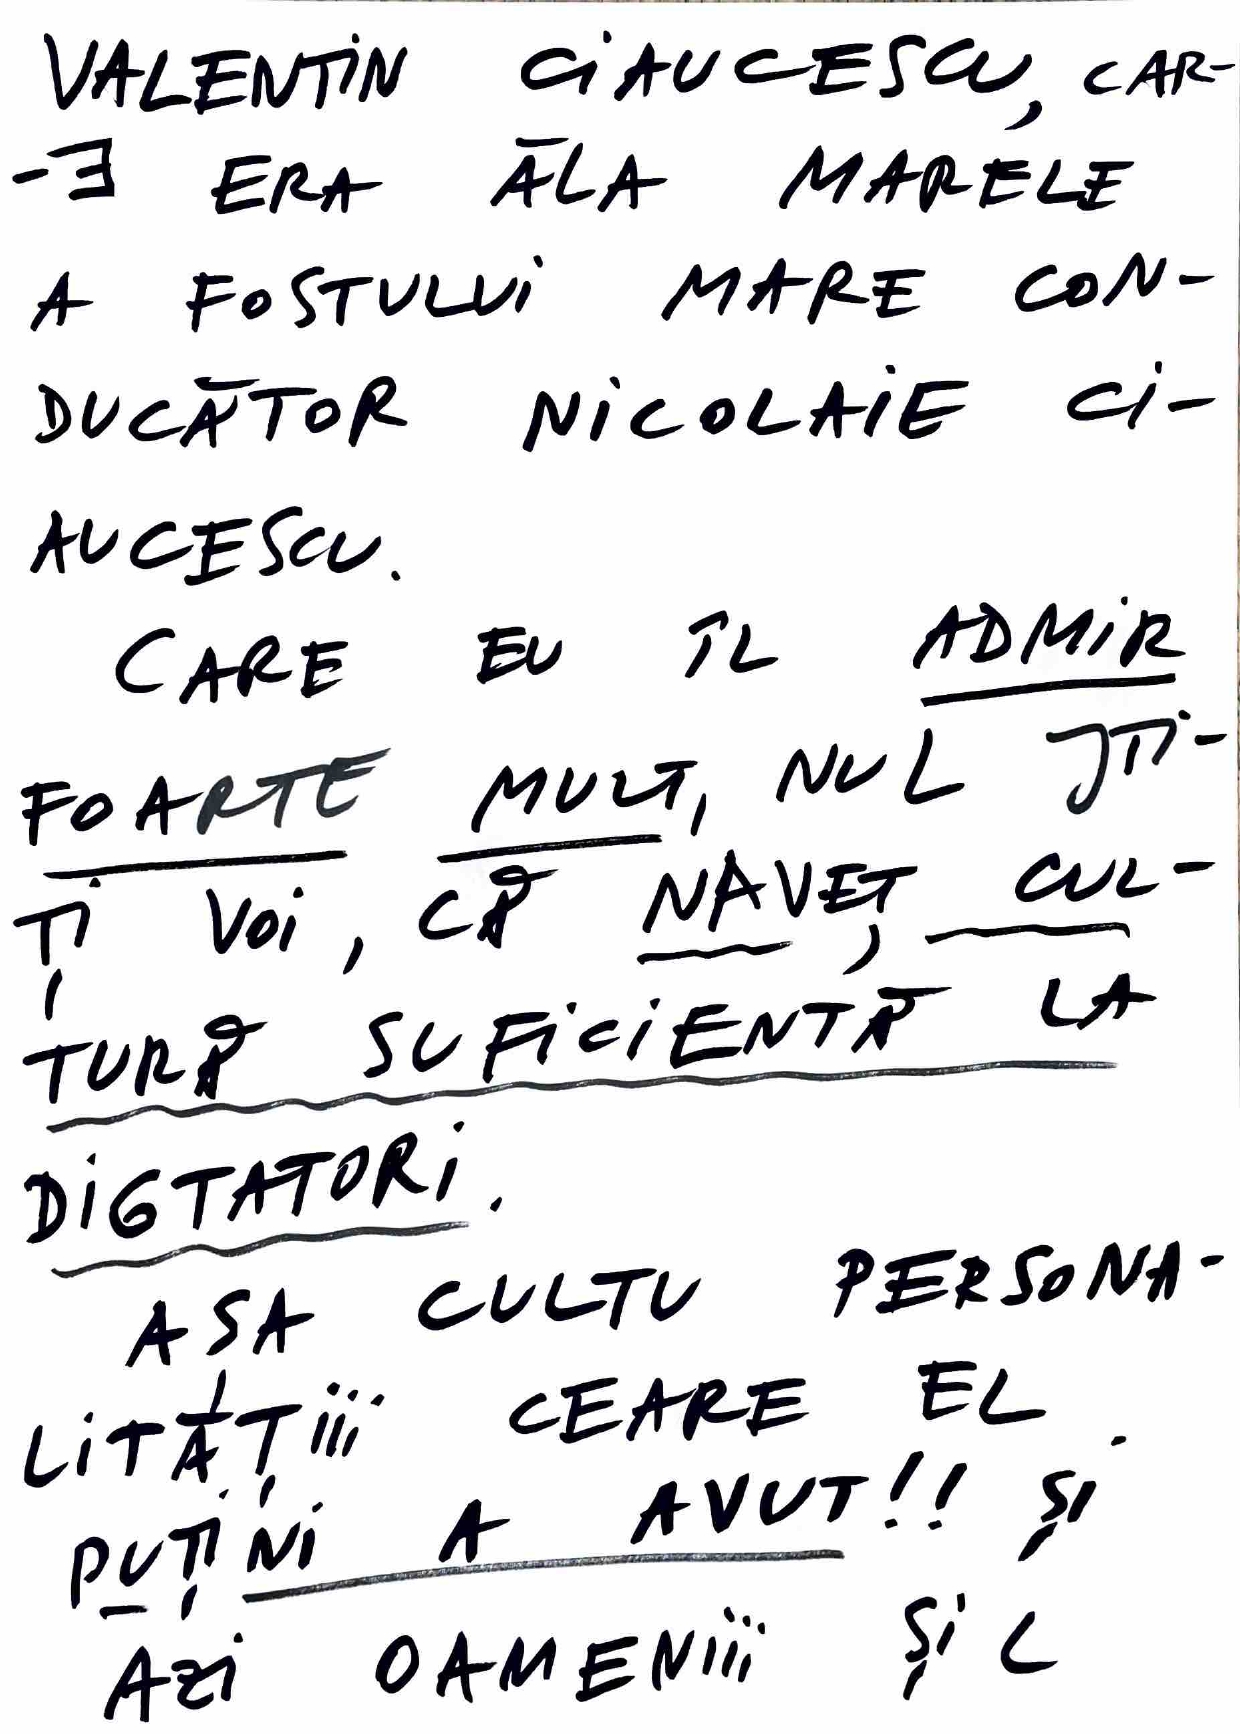 VALENTiN CiAUCESCU, CAR-
-E ERA ĀLA MARELE
A FOSTULUi MARE CON-
DUCĂTOR NiCOLAiE Ci-
AUCESCU.
CARE EU ÎL ADMiR
FOARTE MULT, NUL ȘTi-
Ți Voi, CĂ NAVEȚ CUL-
TURĂ SUFiCiENTĂ LA
DiGTATORi.
ASA CULTU PERSONA-
LiTĂȚiii CEARE EL
PUȚiNi A AVUT!! Și
AZi OAMENiii Și L